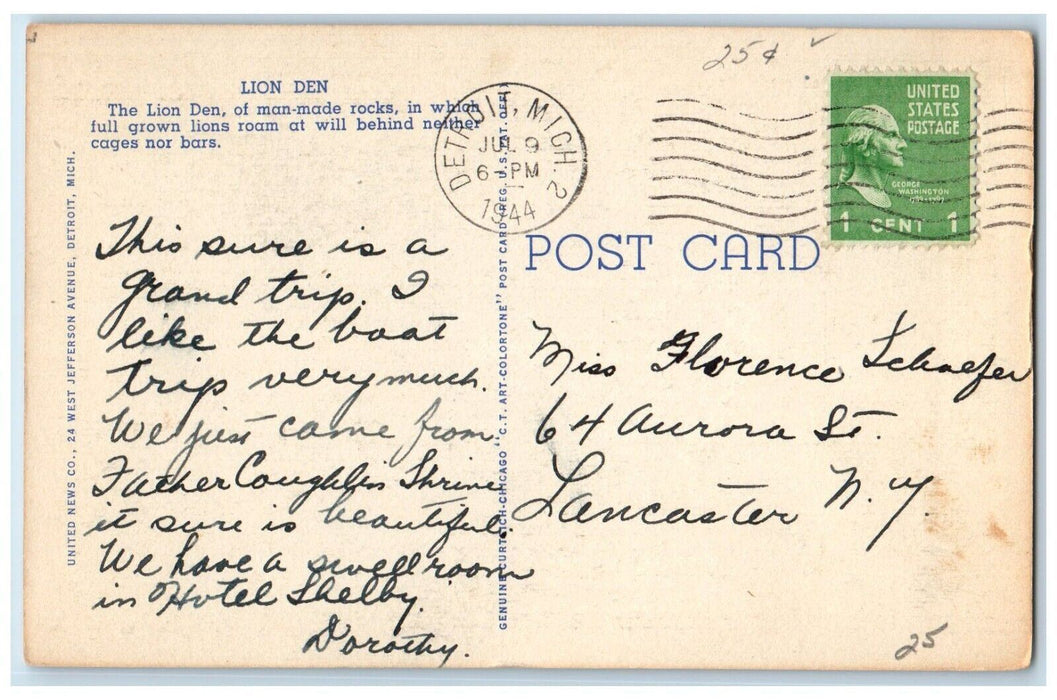 25¢
LION DEN
The Lion Den, of man-made rocks, in which
full grown lions roam at will behind neither
cages nor bars.
UNITED NEWS CO., 24 WEST JEFFERSON AVENUE, DETROIT, MICH.
DETROIT, MICH. 2
JUL 9
6 - PM
1944
UNITED
STATES
POSTAGE
GEORGE
WASHINGTON
1789-1797
1 CENT 1
POST CARD
GENUINE CURTEICH-CHICAGO "C.T. ART-COLORTONE" POST CARD (REG. U.S. PAT. OFF.)
This sure is a
grand trip. I
like the boat
trip very much.
We just came from
Father Coughlin Shrine
it sure is beautiful.
We have a swell room
in Hotel Shelby.
Dorothy.
Miss Florence Schaefer
64 Aurora St.
Lancaster N.Y.
25